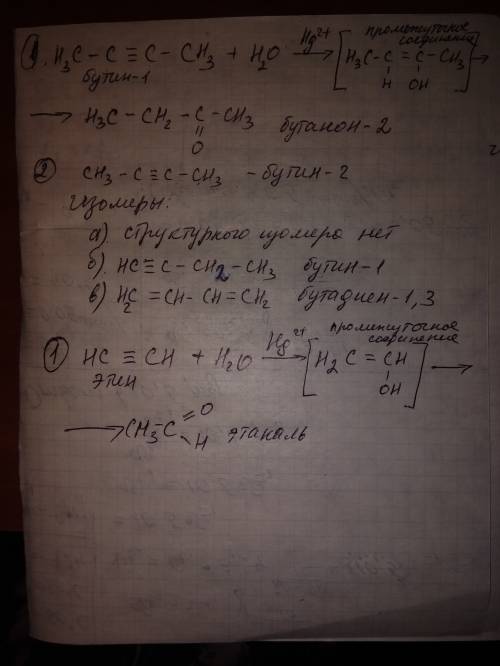 1. H₃C – C ≡ C – CH₃ + H₂O —Hg²⁺→ [промежуточное соединение H₃C – C = C – CH₃] →
H OH
бутин-1
→ H₃C – CH₂ – C – CH₃ бутанон-2
||
O
2 CH₃ – C ≡ C – CH₃ – бутин-2
Изомеры:
а) структурного изомера нет
б). HC ≡ C – CH₂ – CH₃ бутин-1
в) H₂C = CH – CH = CH₂ бутадиен-1,3
1 HC ≡ CH + H₂O —Hg²⁺→ [промежуточное соединение H₂C = CH] →
OH
этин
→ CH₃–C =O –H этаналь